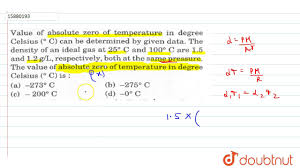 15880193
Value of absolute zero of temperature in degree
Celsius (° C) can be determined by given data. The
density of an ideal gas at 25° C and 100° C are 1.5
and 1.2 g/L, respectively, both at the same pressure.
The value of absolute zero of temperature in degree
Celsius (° C) is :
(a) −273° C (b) −275° C
(c) − 200° C (d) −0° C
d = PM
RT
dT = PM
R
d₁T₁ = d₂T₂
1.5 × (
doubtnut